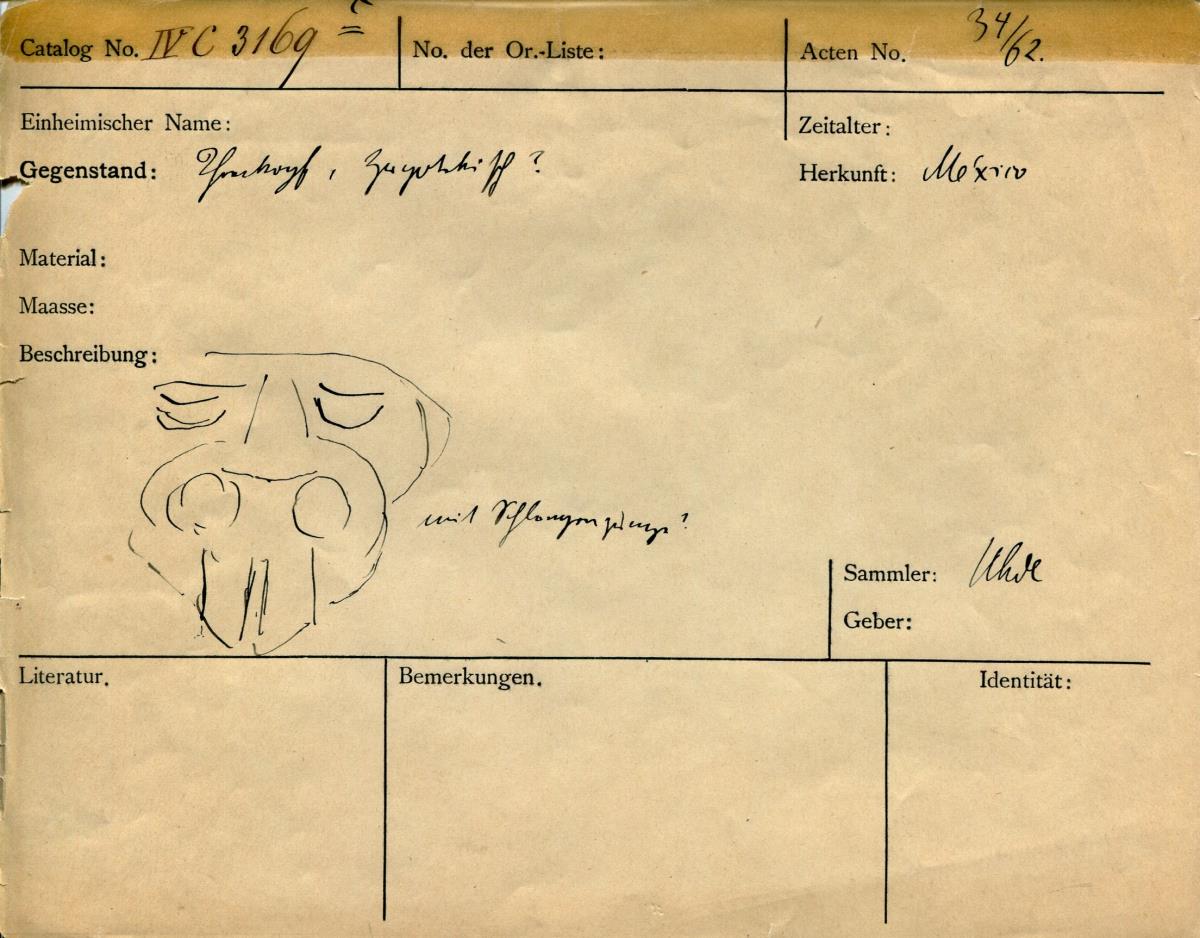 Catalog No. IV C 3169
No. der Or.-Liste:
Acten No. 34/62.
Einheimischer Name:
Zeitalter:
Gegenstand: Thonkopf, zapotekisch?
Herkunft: México
Material:
Maasse:
Beschreibung:
mit Schlangenzunge?
Sammler: Uhde
Geber:
Literatur.
Bemerkungen.
Identität: